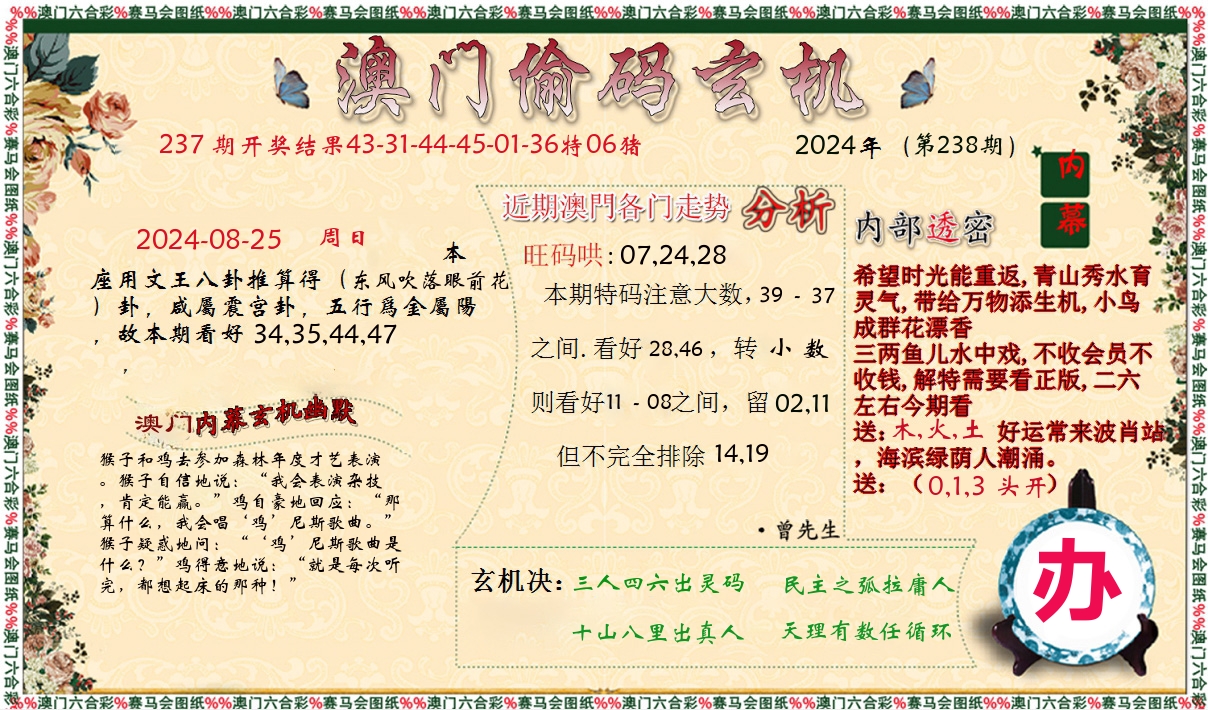 %%澳门六合彩%赛马会图纸%%澳门六合彩%赛马会图纸%%澳门六合彩%赛马会图纸%%澳门六合彩%赛马会图纸%%澳门六合彩%赛马会图纸%%澳门六合彩%赛马会图纸%%
澳门偷码玄机
237 期开奖结果43-31-44-45-01-36特06猪
2024年 (第238期)
内
幕
2024-08-25 周日
本
座用文王八卦推算得（东风吹落眼前花
）卦，咸屬震宫卦，五行爲金屬陽
，故本期看好 34,35,44,47
，
澳门内幕玄机幽默
猴子和鸡去参加森林年度才艺表演
。猴子自信地说：“我会表演杂技
，肯定能赢。”鸡自豪地回应：“那
算什么，我会唱‘鸡’尼斯歌曲。”
猴子疑惑地问：“‘鸡’尼斯歌曲是
什么？”鸡得意地说：“就是每次听
完，都想起床的那种！”
近期澳門各门走势 分析
旺码哄: 07,24,28
本期特码注意大数, 39 - 37
之间. 看好 28,46 ，转 小 数
则看好11 - 08之间，留 02,11
但不完全排除 14,19
·曾先生
内部透密
希望时光能重返, 青山秀水育
灵气, 带给万物添生机, 小鸟
成群花漂香
三两鱼儿水中戏, 不收会员不
收钱, 解特需要看正版, 二六
左右今期看
送: 木, 火, 土 好运常来波肖站
，海滨绿荫人潮涌。
送: （0,1,3 头开）
玄机决: 三人四六出灵码 民主之弧拉庸人
十山八里出真人 天理有数任循环
办
%%澳门六合彩%赛马会图纸%%澳门六合彩%赛马会图纸%%澳门六合彩%赛马会图纸%%澳门六合彩%赛马会图纸%%澳门六合彩%赛马会图纸%%澳门六合彩%赛马会图纸%%